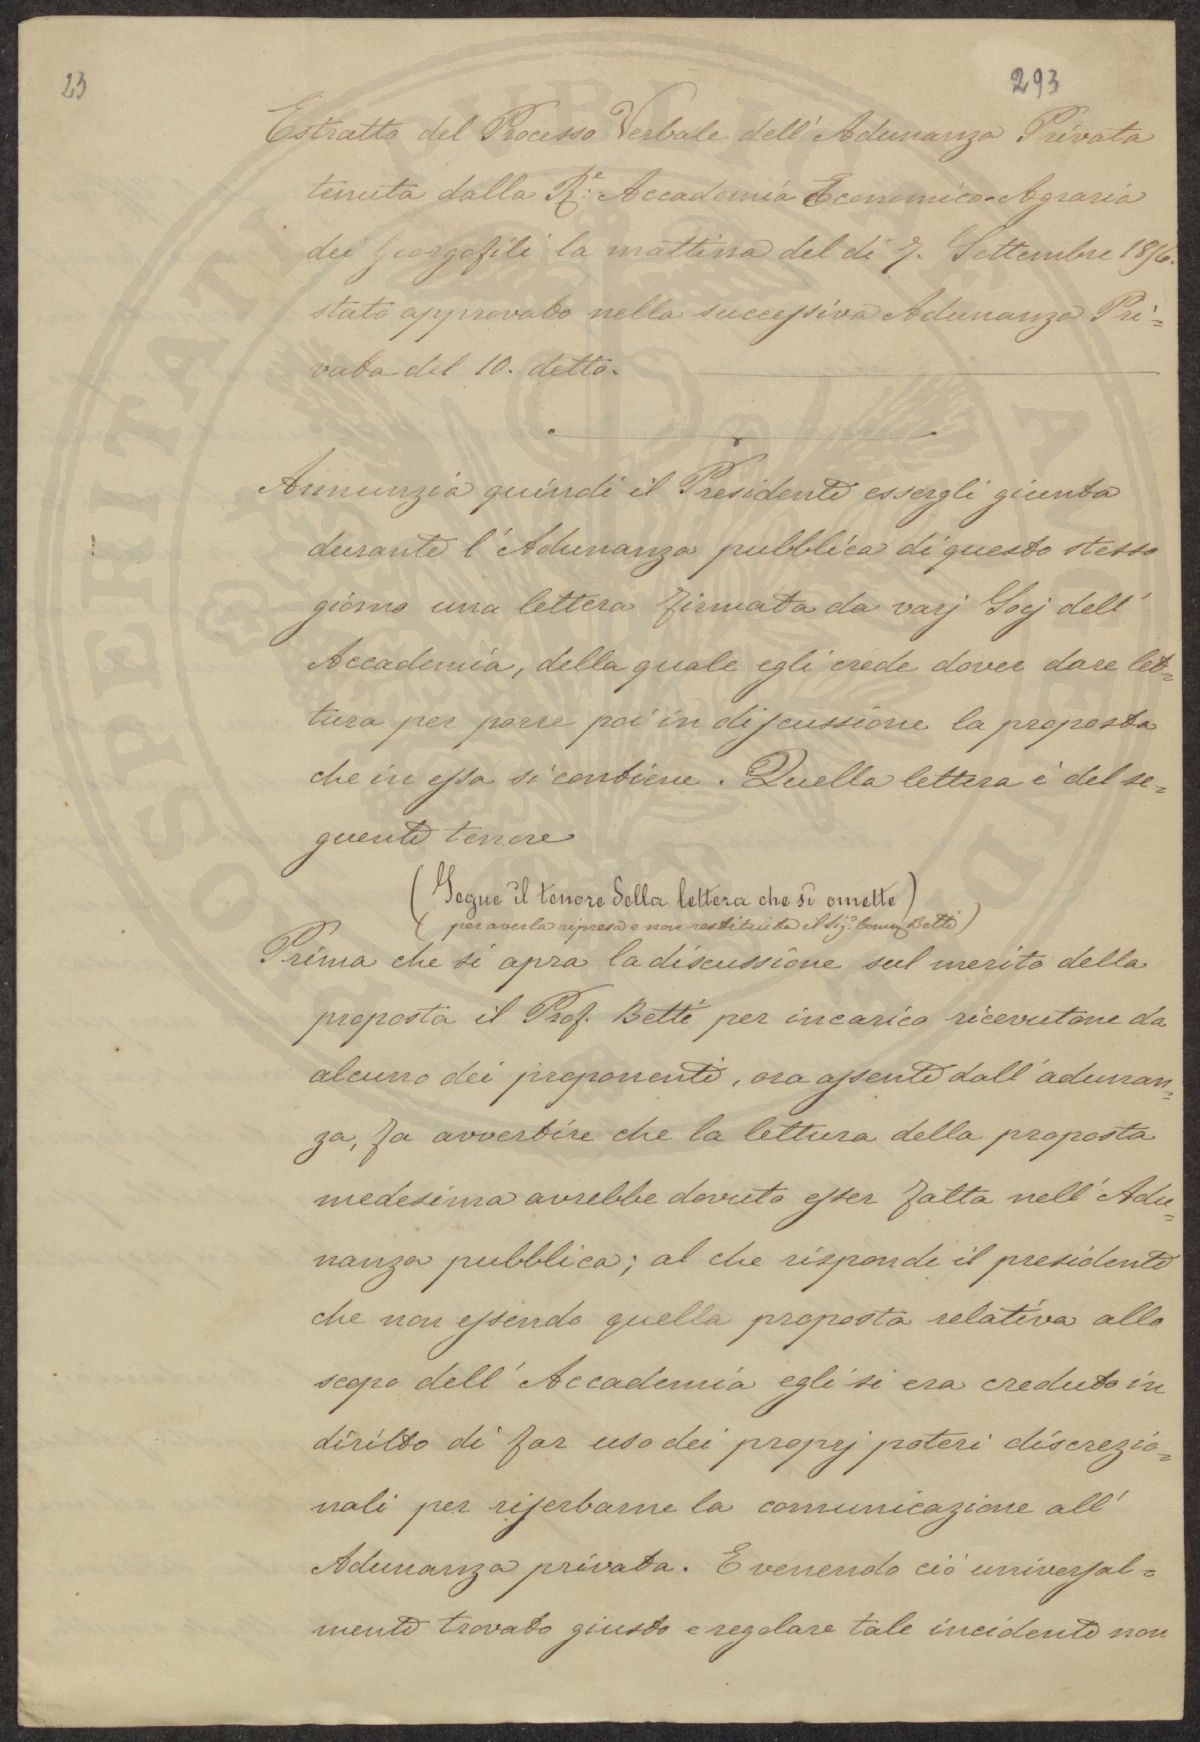 23
293
Estratto del Processo Verbale dell' Adunanza Privata
tenuta dalla R.e Accademia Economico-Agraria
dei Georgofili la mattina del dì 7. Settembre 1856.
stato approvato nella successiva Adunanza Pri=
vata del 10. detto.
Annunzia quindi il Presidente essergli giunta
durante l'Adunanza pubblica di questo stesso
giorno una lettera firmata da varj Socj dell'
Accademia, della quale egli crede dover dare let=
tura per porre poi in discussione la proposta
che in essa si contiene. Quella lettera è del se=
guente tenore
(Segue il tenore della lettera che si omette)
(per averla ripresa e non restituita il Sig.r Betti)
Prima che si apra la discussione sul merito della
proposta il Prof. Betti per incarico ricevutone da
alcuno dei proponenti, ora assente dall'adunan=
za, fa avvertire che la lettura della proposta
medesima avrebbe dovuto esser fatta nell'Adu=
nanza pubblica; al che risponde il presidente
che non essendo quella proposta relativa allo
scopo dell'Accademia egli si era creduto in
diritto di far uso dei proprj poteri discrezio=
nali per riserbarne la comunicazione all'
Adunanza privata. E venendo ciò universal=
mente trovato giusto e regolare tale incidente non
OSPERITATI PUBLICAE AU